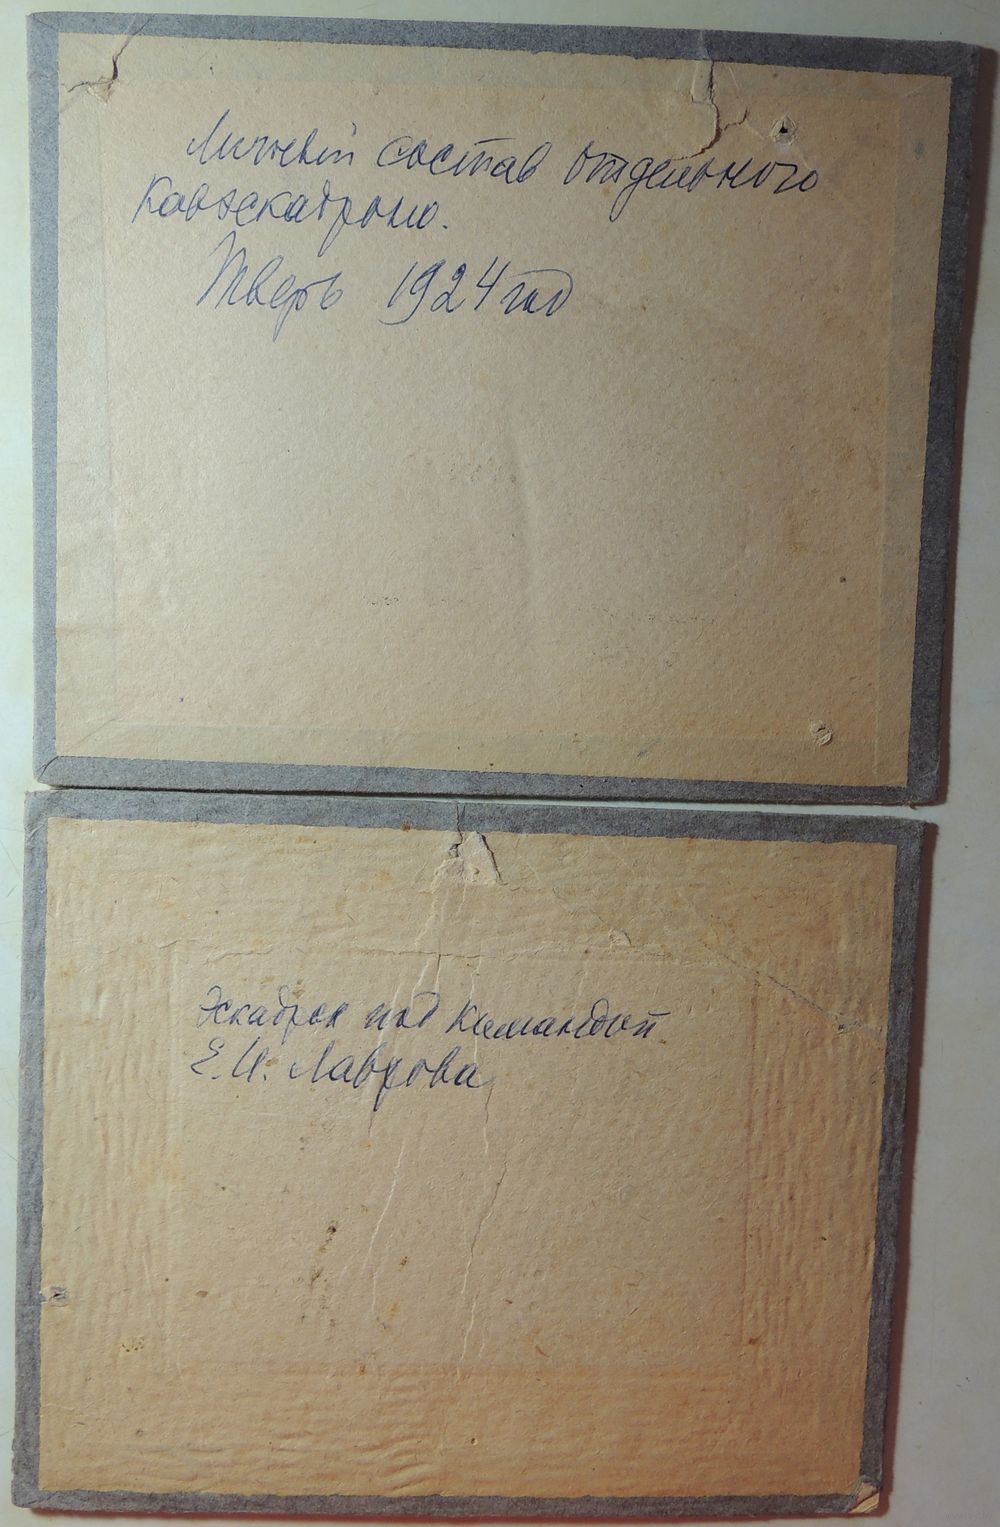 Личный состав отдельного
кавэскадрона.
Тверь 1924 год
Эскадрон под командой
Е.И. Лаврова